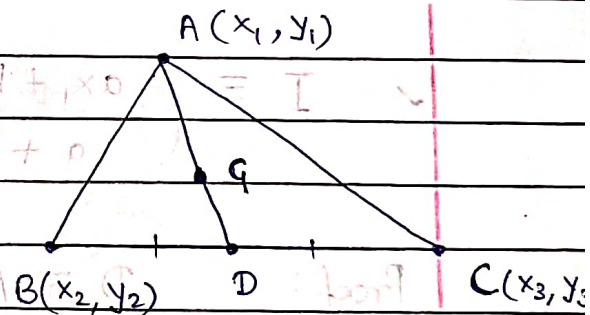 A (x₁, y₁)
G
B(x₂, y₂) D C(x₃, y₃